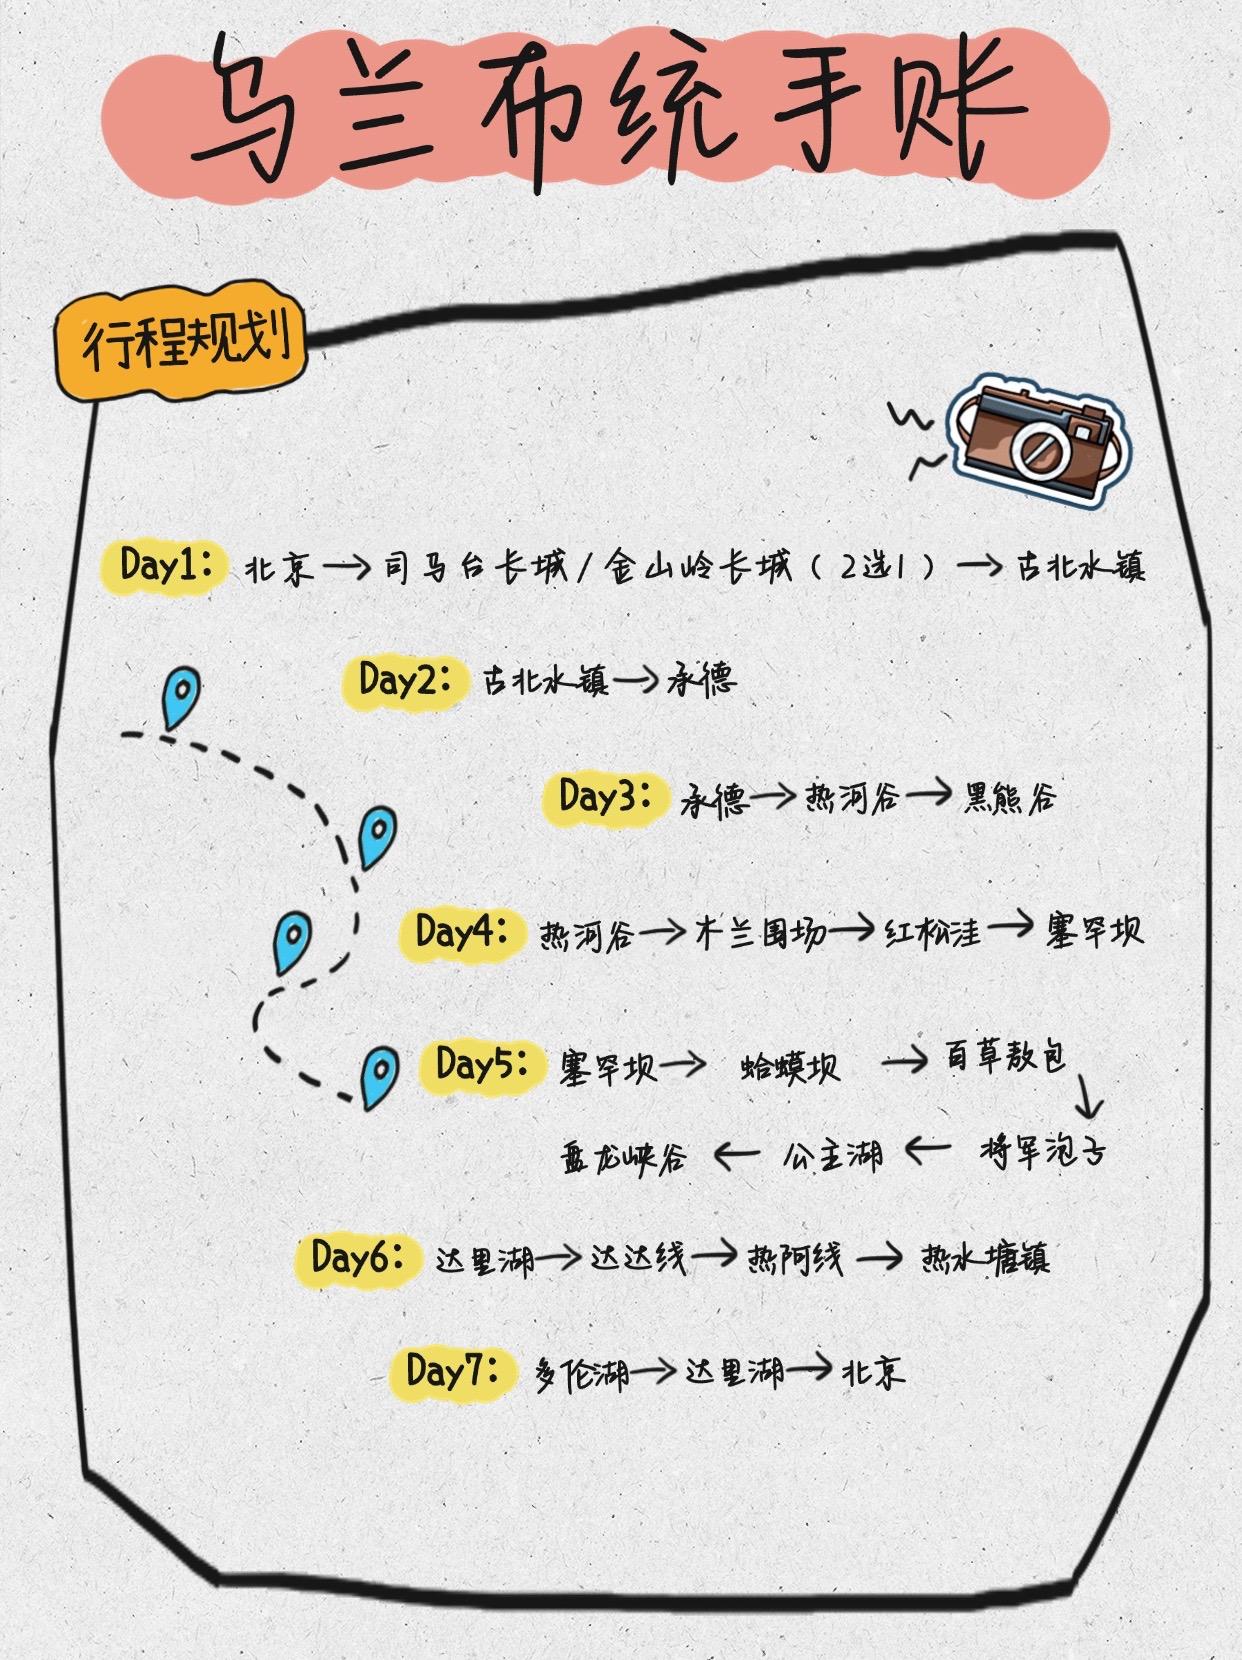 乌兰布统手账
行程规划
Day1: 北京→司马台长城/金山岭长城(2选1)→古北水镇
Day2: 古北水镇→承德
Day3: 承德→热河谷→黑熊谷
Day4: 热河谷→木兰围场→红松洼→塞罕坝
Day5: 塞罕坝→ 蛤蟆坝 →百草敖包
↓
盘龙峡谷 ← 公主湖 ← 将军泡子
Day6: 达里湖→达达线→热阿线→热水塘镇
Day7: 多伦湖→达里湖→北京